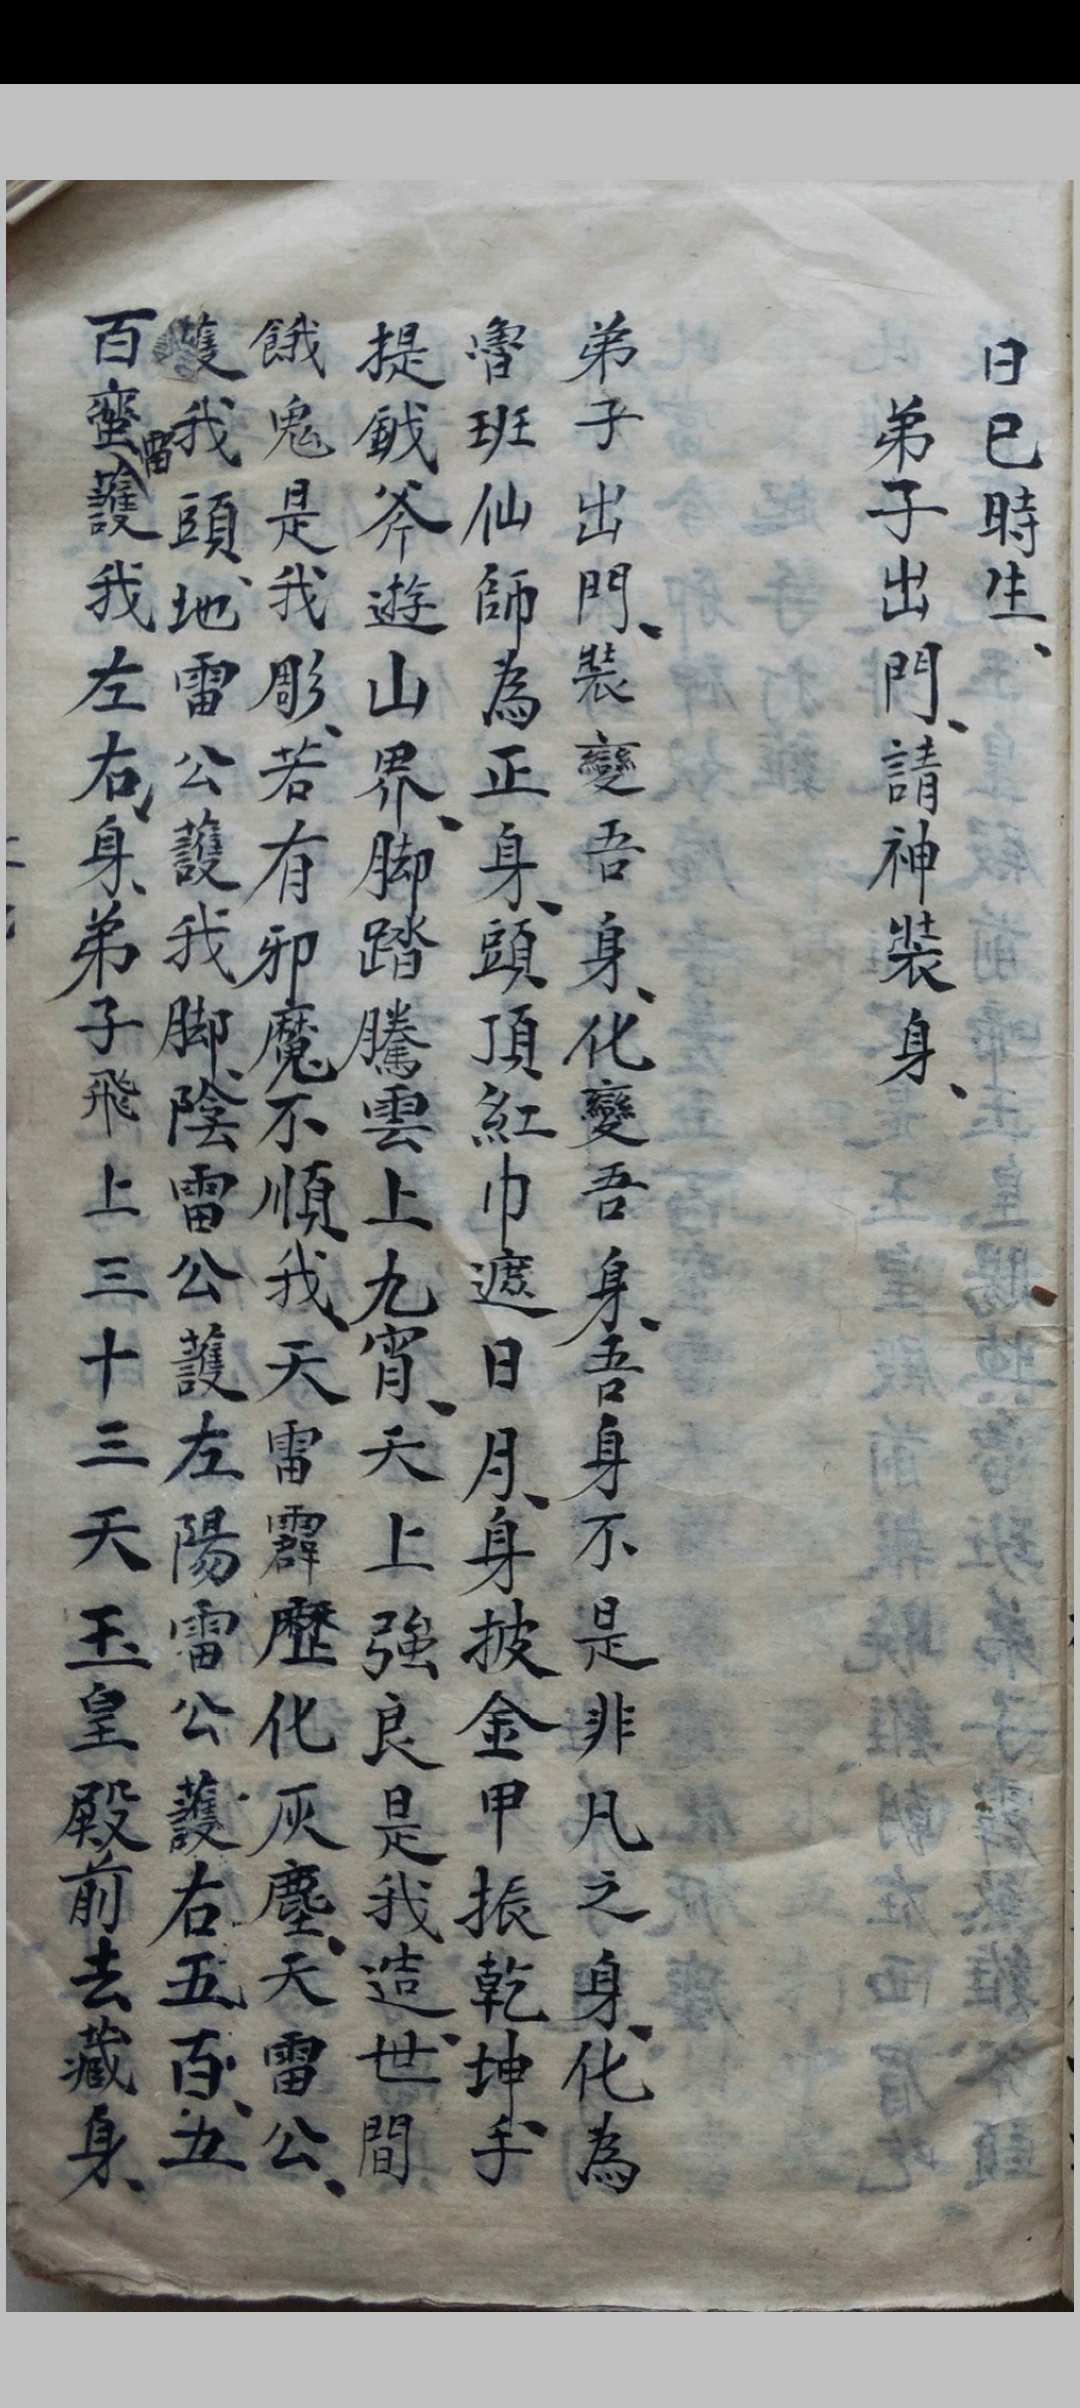 日巳時生、
弟子出門、請神裝身、
弟子出門、裝變吾身、化變吾身、吾身不是非凡之身、化為
魯班仙師為正身、頭頂紅巾遮日月、身披金甲振乾坤、手
提鉞斧遊山界、脚踏騰雲上九宵、天上強良是我造、世間
餓鬼是我彫、若有邪魔不順我、天雷霹歷化灰塵、天雷公、
護我頭、地雷公護我脚、陰雷公護左陽雷公護右五百、五
百蛮雷護我左右身、弟子飛上三十三天玉皇殿前去藏身、